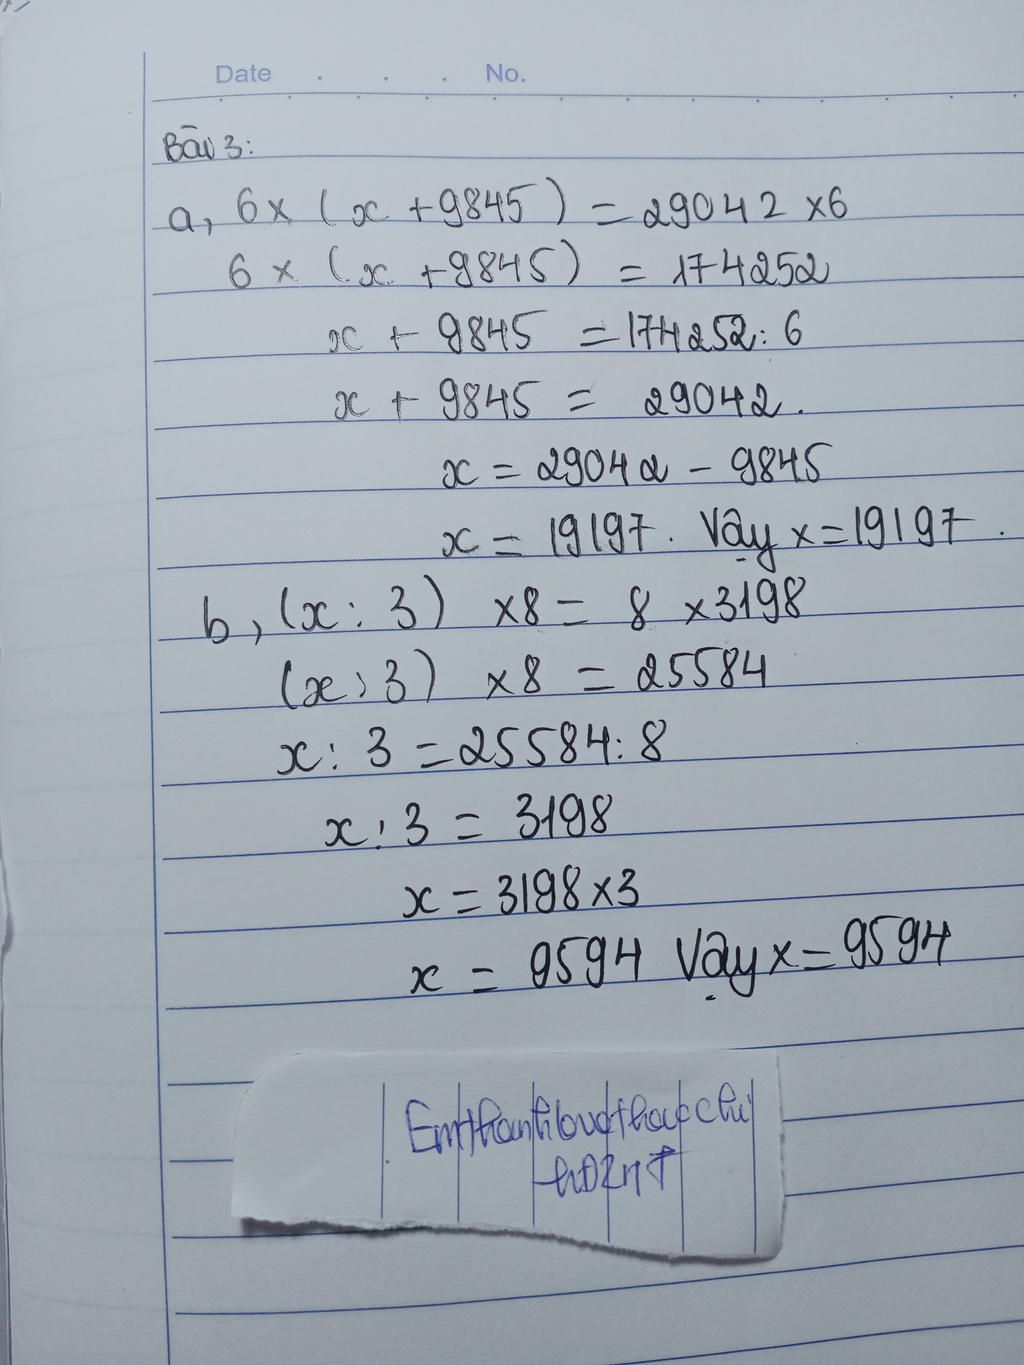 Date . . . No.
Bài 3:
a, 6 x (x + 9845) = 29042 x 6
6 x (x + 9845) = 174252
x + 9845 = 174252 : 6
x + 9845 = 29042.
x = 29042 - 9845
x = 19197. Vậy x = 19197.
b, (x : 3) x 8 = 8 x 3198
(x : 3) x 8 = 25584
x : 3 = 25584 : 8
x : 3 = 3198
x = 3198 x 3
x = 9594 Vậy x = 9594